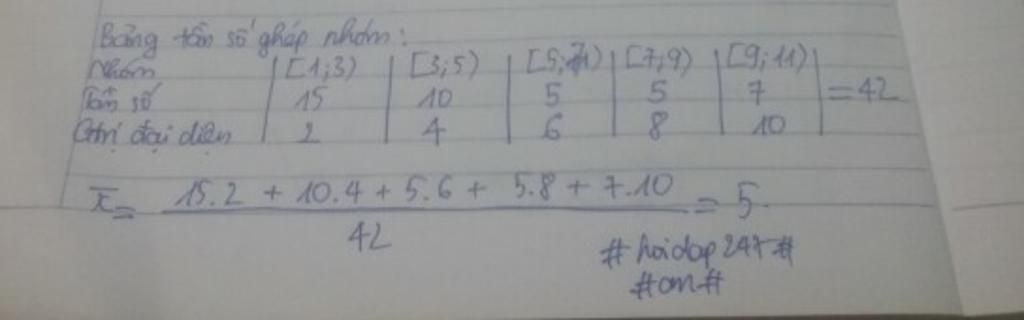 Bảng tần số ghép nhóm:
Nhóm | [1;3) | [3;5) | [5;7) | [7;9) | [9;11) |
Tần số | 15 | 10 | 5 | 5 | 7 | = 42
Gtrị đại diện | 2 | 4 | 6 | 8 | 10 |
x̅ = (15.2 + 10.4 + 5.6 + 5.8 + 7.10) / 42 = 5.
# hoidap247 #
#om#